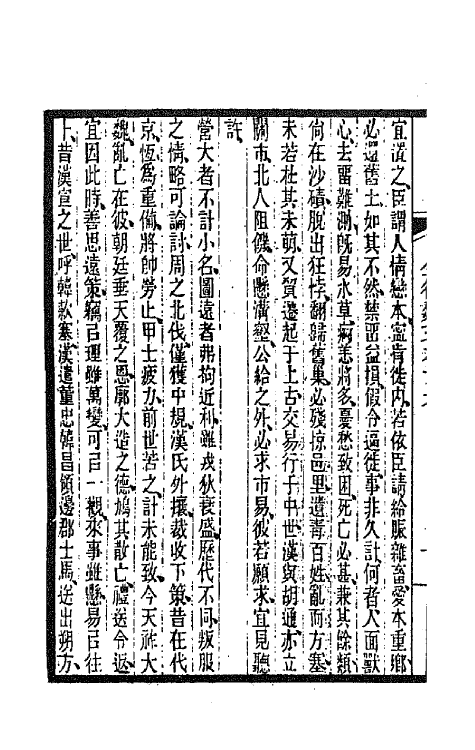 宜遣之、臣謂人情戀本、寧肯徙內、若依臣請給賑雜畜、愛本重鄉、
必還舊土、如其不然、禁畱益損、假令逼徙、事非久計、何者人面獸
心、去畱難測、旣易水草、痾恙將多、憂愁致困、死亡必甚、兼其餘類
尙在沙磧、脫出狂悖、翻歸舊巢、必殘掠邑里、遺毒百姓、亂而方塞、
未若杜其未萌、又貿遷起于上古、交易行于中世、漢與胡通、亦立
關市、北人阻饑、命懸溝壑、公給之外、必求市易、彼若願求、宜見聽
許、
營大者不計小名、圖遠者弗拘近利、雖戎狄衰盛、歷代不同、叛服
之情、略可論討、周之北伐、僅獲中規、漢氏外攘、裁收下策、昔在代
京、恆爲重備、將帥勞止、甲士疲力、前世苦之、計未能致、今天祚大
魏、亂亡在彼、朝廷垂天覆之恩、廓大造之德、鳩其散亡、禮送令返、
宜因此時、善思遠策、竊㠯理雖萬變、可㠯一觀、來事雖懸、易㠯往
卜、昔漢宣之世、呼韓款塞、漢遣董忠韓昌領邊郡士馬、送出朔方、